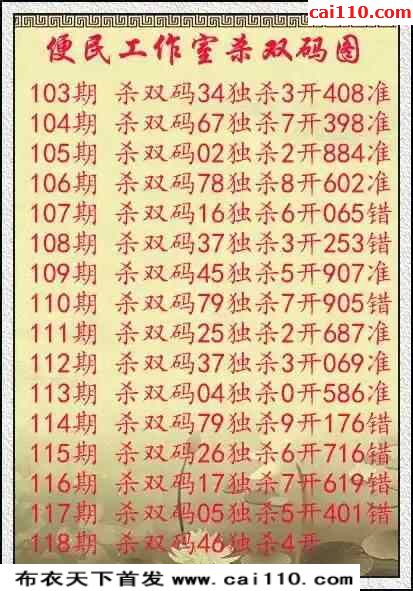 cai110.com
便民工作室杀双码图
103期 杀双码34独杀3开408准
104期 杀双码67独杀7开398准
105期 杀双码02独杀2开884准
106期 杀双码78独杀8开602准
107期 杀双码16独杀6开065错
108期 杀双码37独杀3开253错
109期 杀双码45独杀5开907准
110期 杀双码79独杀7开905错
111期 杀双码25独杀2开687准
112期 杀双码37独杀3开069准
113期 杀双码04独杀0开586准
114期 杀双码79独杀9开176错
115期 杀双码26独杀6开716错
116期 杀双码17独杀7开619错
117期 杀双码05独杀5开401错
118期 杀双码46独杀4开
布衣天下首发 www.cai110.com